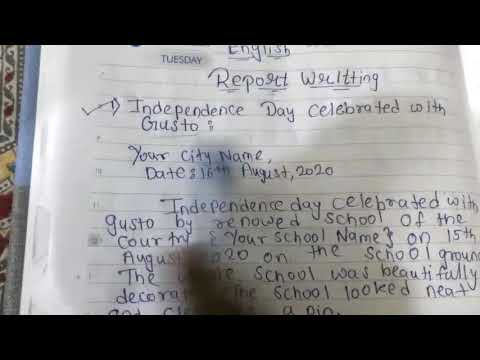 English
TUESDAY
Report Wrltting
Independence Day celebrated with
Gusto :
Your City Name,
Date : 16th August, 2020
Independence day celebrated with
gusto by renowed school of the
{ Your School Name } on 15th
August 2020 on the school ground
The school was beautifully
decorated The school looked neat
and a pin